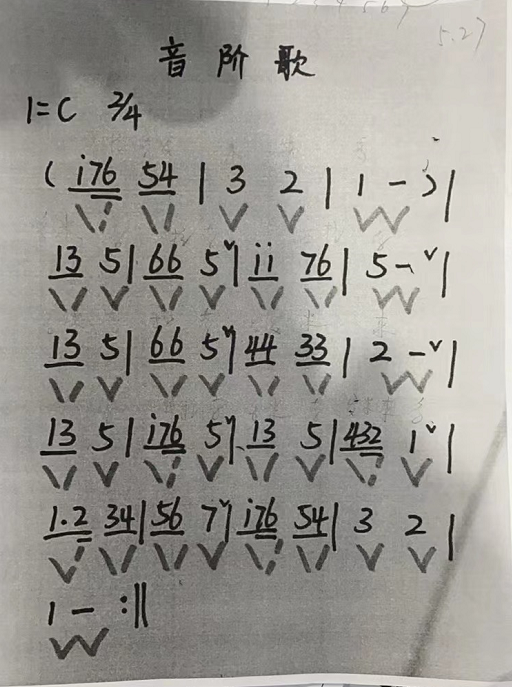 音阶歌
1=C 2/4
( i76 54 | 3 2 | 1 - ) |
13 5 | 66 5ˇ | ii 76 | 5 - ˇ |
13 5 | 66 5ˇ | 44 33 | 2 - ˇ |
13 5 | i76 5ˇ | 13 5 | 432 1ˇ |
1.2 34 | 56 7ˇ | i76 54 | 3 2 |
1 - :‖